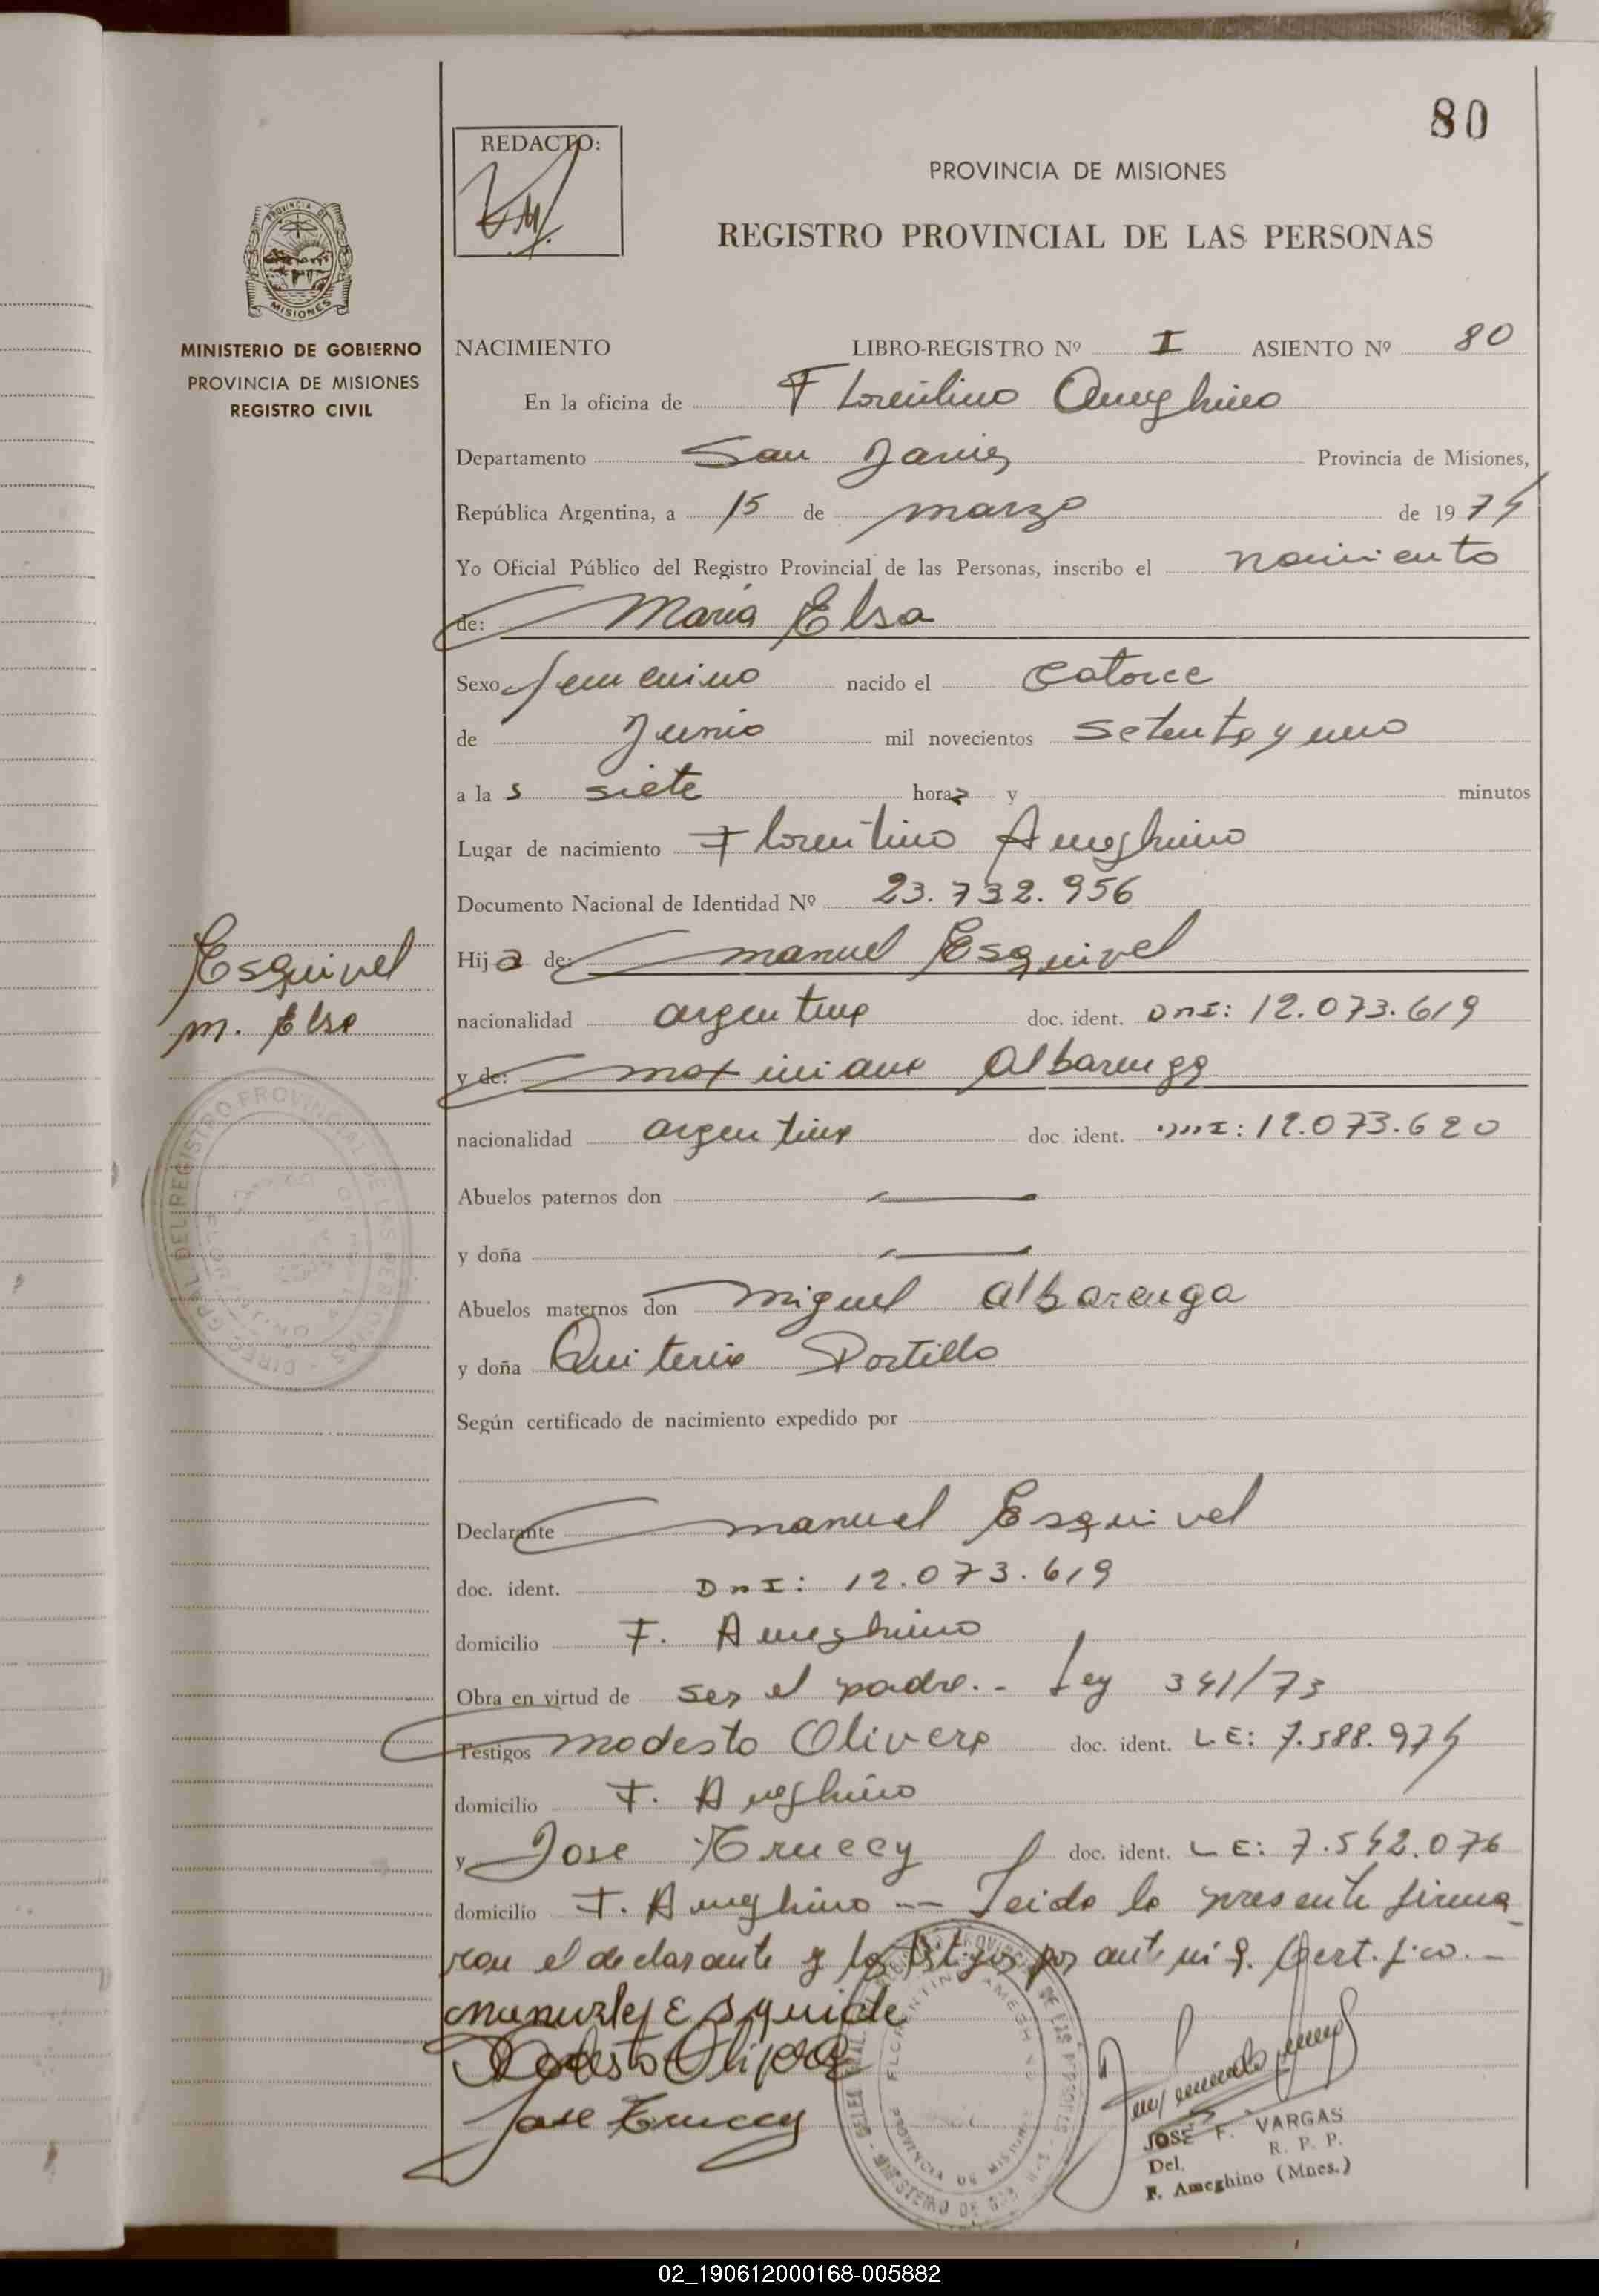 80
REDACTO:
PROVINCIA DE MISIONES
REGISTRO PROVINCIAL DE LAS PERSONAS
PROVINCIA DE
MISIONES
MINISTERIO DE GOBIERNO
PROVINCIA DE MISIONES
REGISTRO CIVIL
NACIMIENTO LIBRO-REGISTRO Nº I ASIENTO Nº 80
En la oficina de Florentino Ameghino
Departamento San Javier Provincia de Misiones,
República Argentina, a 15 de marzo de 1974
Yo Oficial Público del Registro Provincial de las Personas, inscribo el nacimiento
de: María Elsa
Sexo femenino nacido el Catorce
de Junio mil novecientos setenta y uno
a las siete horas y minutos
Lugar de nacimiento Florentino Ameghino
Documento Nacional de Identidad Nº 23.732.956
Esquivel
m. Elsa
Hija de: manuel Esquivel
nacionalidad argentina doc. ident. DNI: 12.073.619
y de: maximiana Albarenga
nacionalidad argentina doc. ident. DNI: 12.073.620
Abuelos paternos don —
y doña —
Abuelos maternos don miguel albarenga
y doña Quiteria Portillo
Según certificado de nacimiento expedido por
Declarante manuel Esquivel
doc. ident. DNI: 12.073.619
domicilio F. Ameghino
Obra en virtud de ser el padre.- Ley 341/73
Testigos modesto Olivera doc. ident. LE: 7.588.974
domicilio F. Ameghino
y Jose Truccy doc. ident. LE: 7.542.076
domicilio F. Ameghino -- Leida la presente firma
ron el declarante y los testigos por ante mi q. Certifico.-
Modesto Olivera
Jose Truccy
FLORENTINO AMEGHINO
PROVINCIA DE MISIONES
JOSE F. VARGAS
Del. R. P. P.
F. Ameghino (Mnes.)
02_190612000168-005882